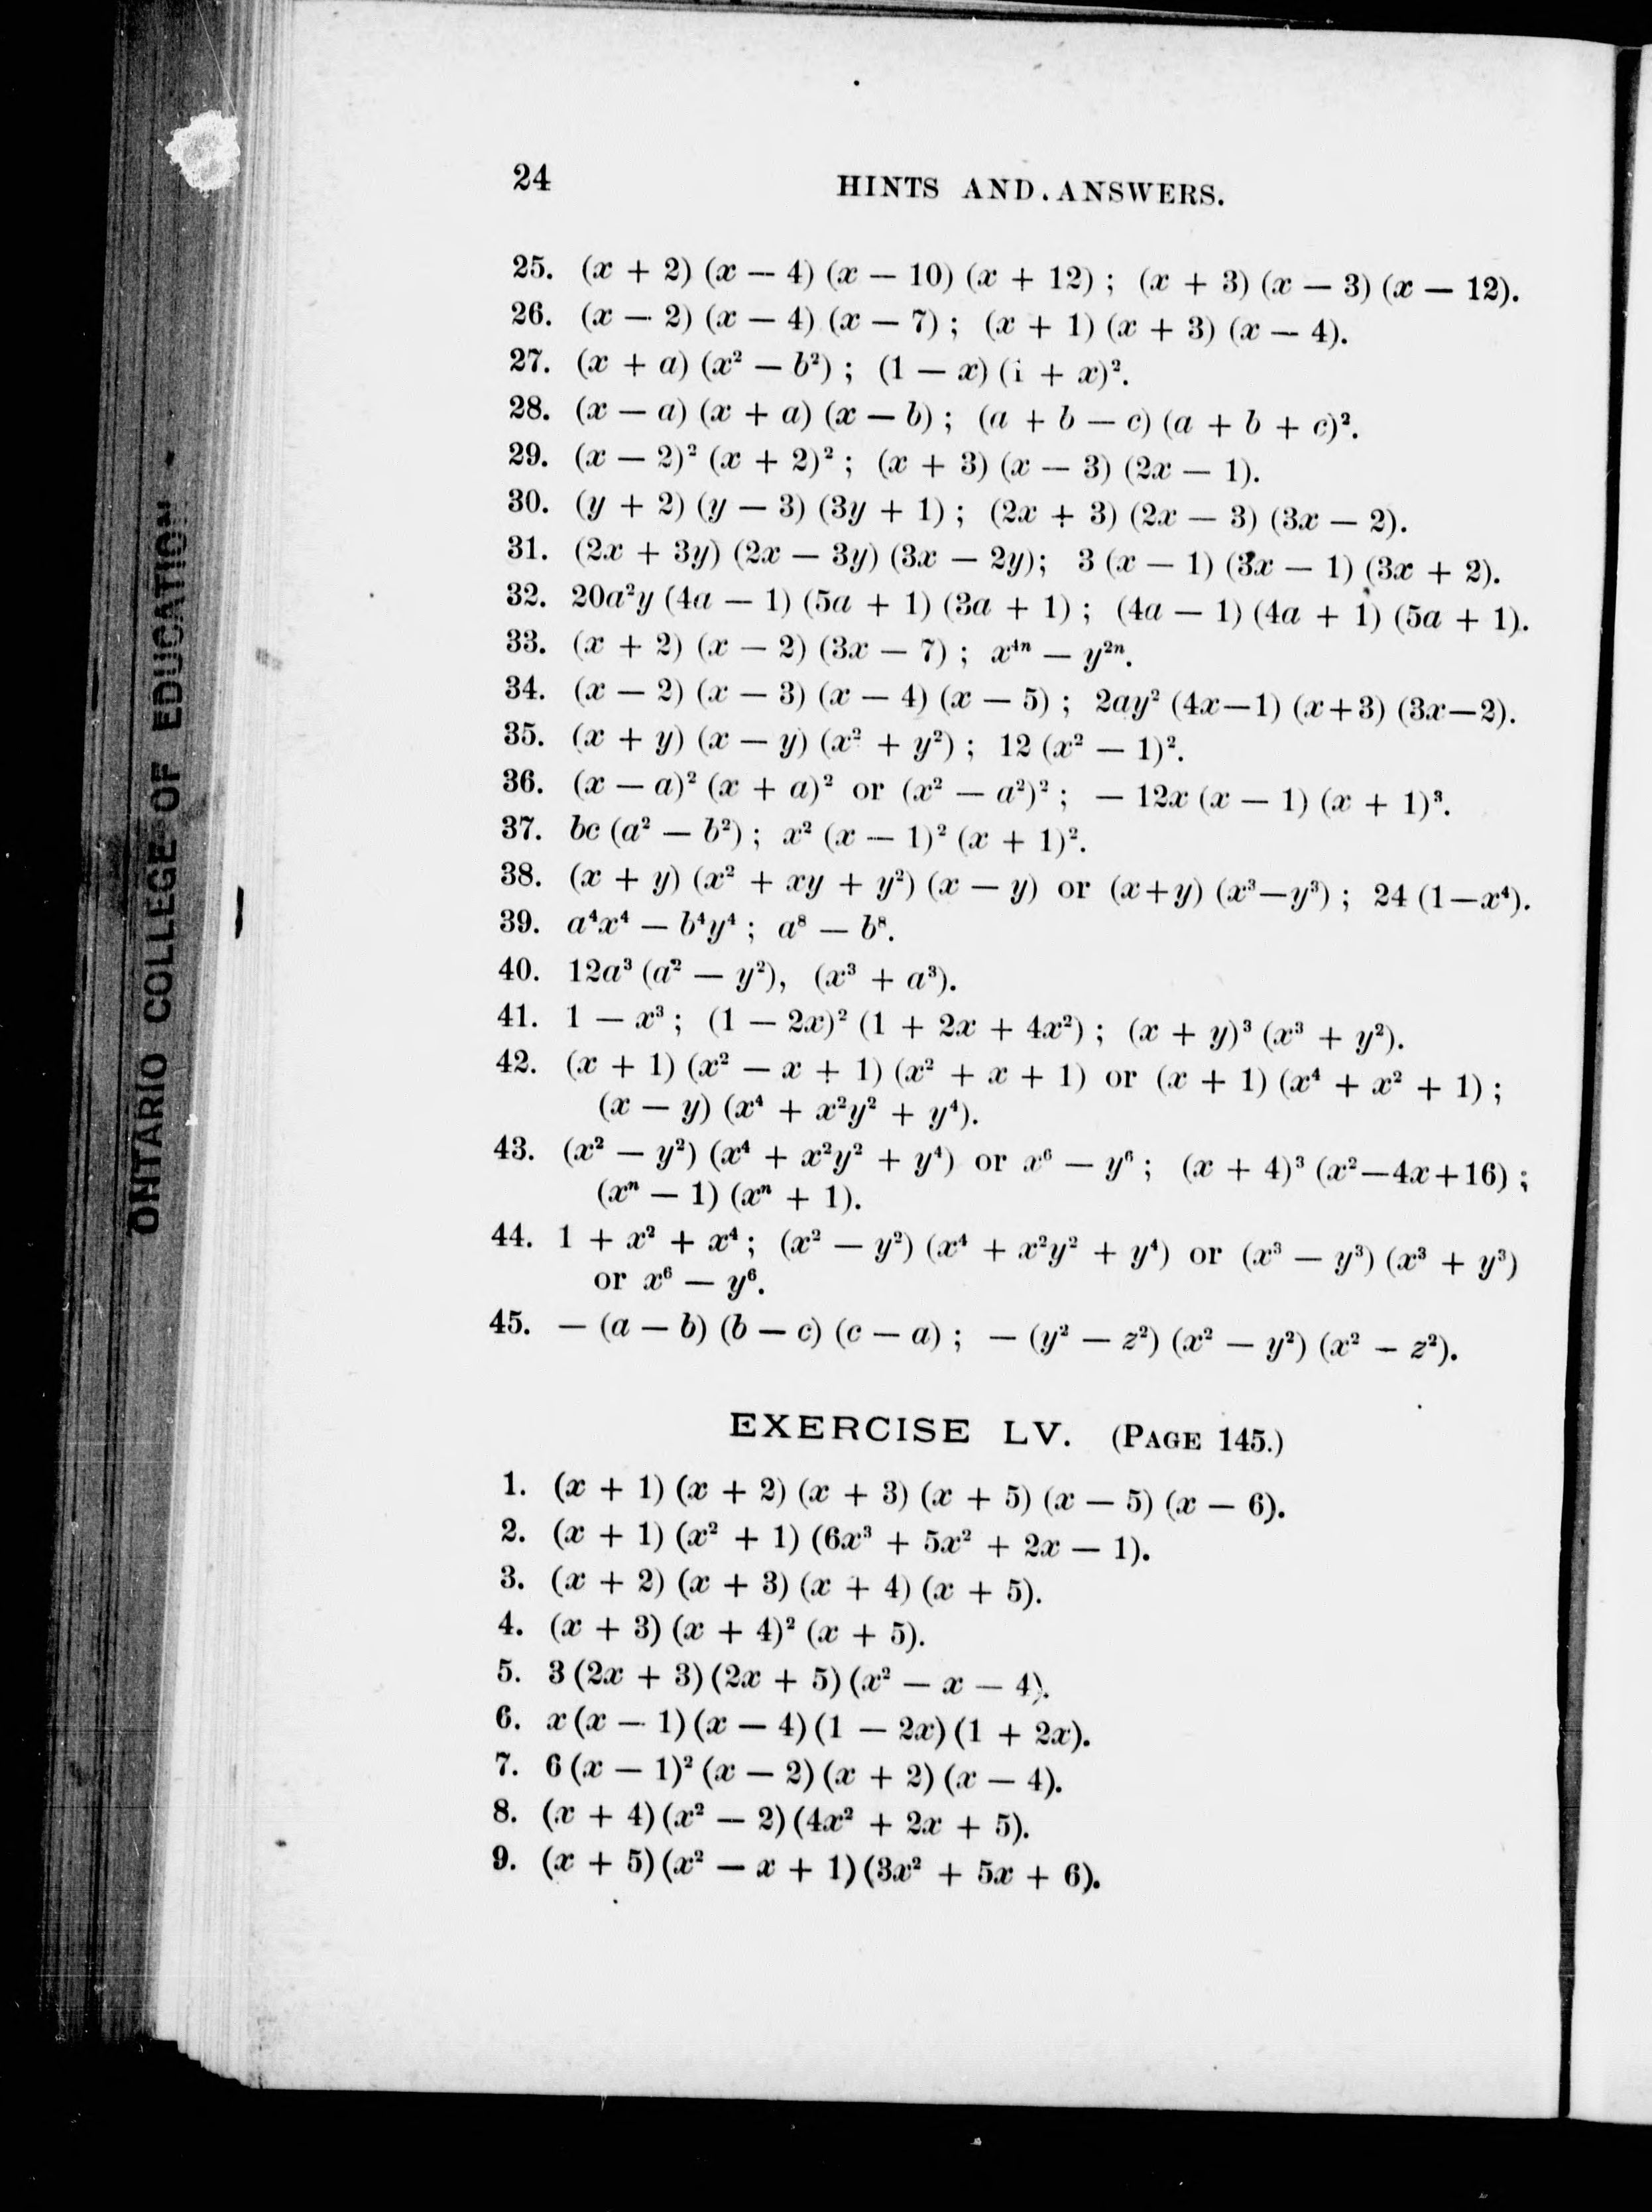 24 HINTS AND.ANSWERS.
25. (x + 2) (x — 4) (x — 10) (x + 12) ; (x + 3) (x — 3) (x — 12).
26. (x — 2) (x — 4) (x — 7) ; (x + 1) (x + 3) (x — 4).
27. (x + a) (x² — b²) ; (1 — x) (i + x)².
28. (x — a) (x + a) (x — b) ; (a + b — c) (a + b + c)².
29. (x — 2)² (x + 2)² ; (x + 3) (x — 3) (2x — 1).
30. (y + 2) (y — 3) (3y + 1) ; (2x + 3) (2x — 3) (3x — 2).
31. (2x + 3y) (2x — 3y) (3x — 2y); 3 (x — 1) (3x — 1) (3x + 2).
32. 20a²y (4a — 1) (5a + 1) (3a + 1) ; (4a — 1) (4a + 1) (5a + 1).
33. (x + 2) (x — 2) (3x — 7) ; x⁴ⁿ — y²ⁿ.
34. (x — 2) (x — 3) (x — 4) (x — 5) ; 2ay² (4x—1) (x+3) (3x—2).
35. (x + y) (x — y) (x² + y²) ; 12 (x² — 1)².
36. (x — a)² (x + a)² or (x² — a²)² ; — 12x (x — 1) (x + 1)³.
37. bc (a² — b²) ; x² (x — 1)² (x + 1)².
38. (x + y) (x² + xy + y²) (x — y) or (x+y) (x³—y³) ; 24 (1—x⁴).
39. a⁴x⁴ — b⁴y⁴ ; a⁸ — b⁸.
40. 12a³ (a² — y²), (x³ + a³).
41. 1 — x³ ; (1 — 2x)² (1 + 2x + 4x²) ; (x + y)³ (x³ + y²).
42. (x + 1) (x² — x + 1) (x² + x + 1) or (x + 1) (x⁴ + x² + 1) ;
(x — y) (x⁴ + x²y² + y⁴).
43. (x² — y²) (x⁴ + x²y² + y⁴) or x⁶ — y⁶ ; (x + 4)³ (x²—4x+16) ;
(xⁿ — 1) (xⁿ + 1).
44. 1 + x² + x⁴ ; (x² — y²) (x⁴ + x²y² + y⁴) or (x³ — y³) (x³ + y³)
or x⁶ — y⁶.
45. — (a — b) (b — c) (c — a) ; — (y² — z²) (x² — y²) (x² — z²).
EXERCISE LV. (PAGE 145.)
1. (x + 1) (x + 2) (x + 3) (x + 5) (x — 5) (x — 6).
2. (x + 1) (x² + 1) (6x³ + 5x² + 2x — 1).
3. (x + 2) (x + 3) (x + 4) (x + 5).
4. (x + 3) (x + 4)² (x + 5).
5. 3 (2x + 3) (2x + 5) (x² — x — 4).
6. x (x — 1) (x — 4) (1 — 2x) (1 + 2x).
7. 6 (x — 1)² (x — 2) (x + 2) (x — 4).
8. (x + 4) (x² — 2) (4x² + 2x + 5).
9. (x + 5) (x² — x + 1) (3x² + 5x + 6).
ONTARIO COLLEGE OF EDUCATION